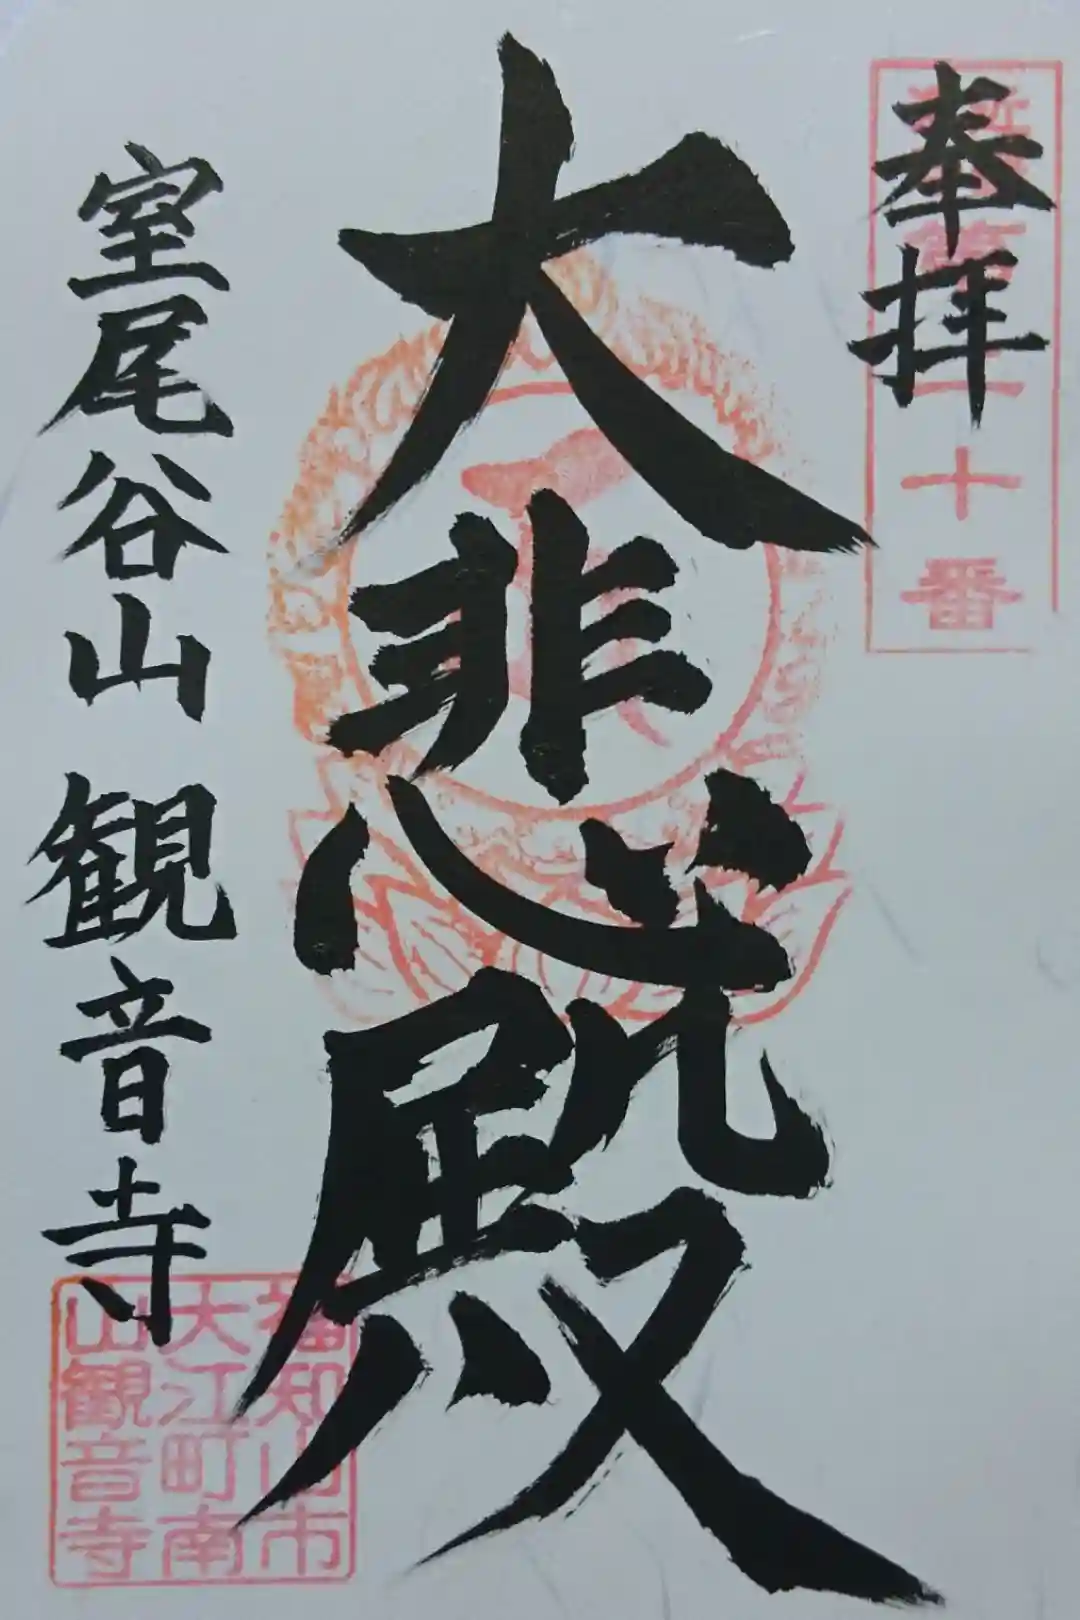 奉拝
十番
大悲殿
室尾谷山 観音寺
福知山市
大江町南
山観音寺